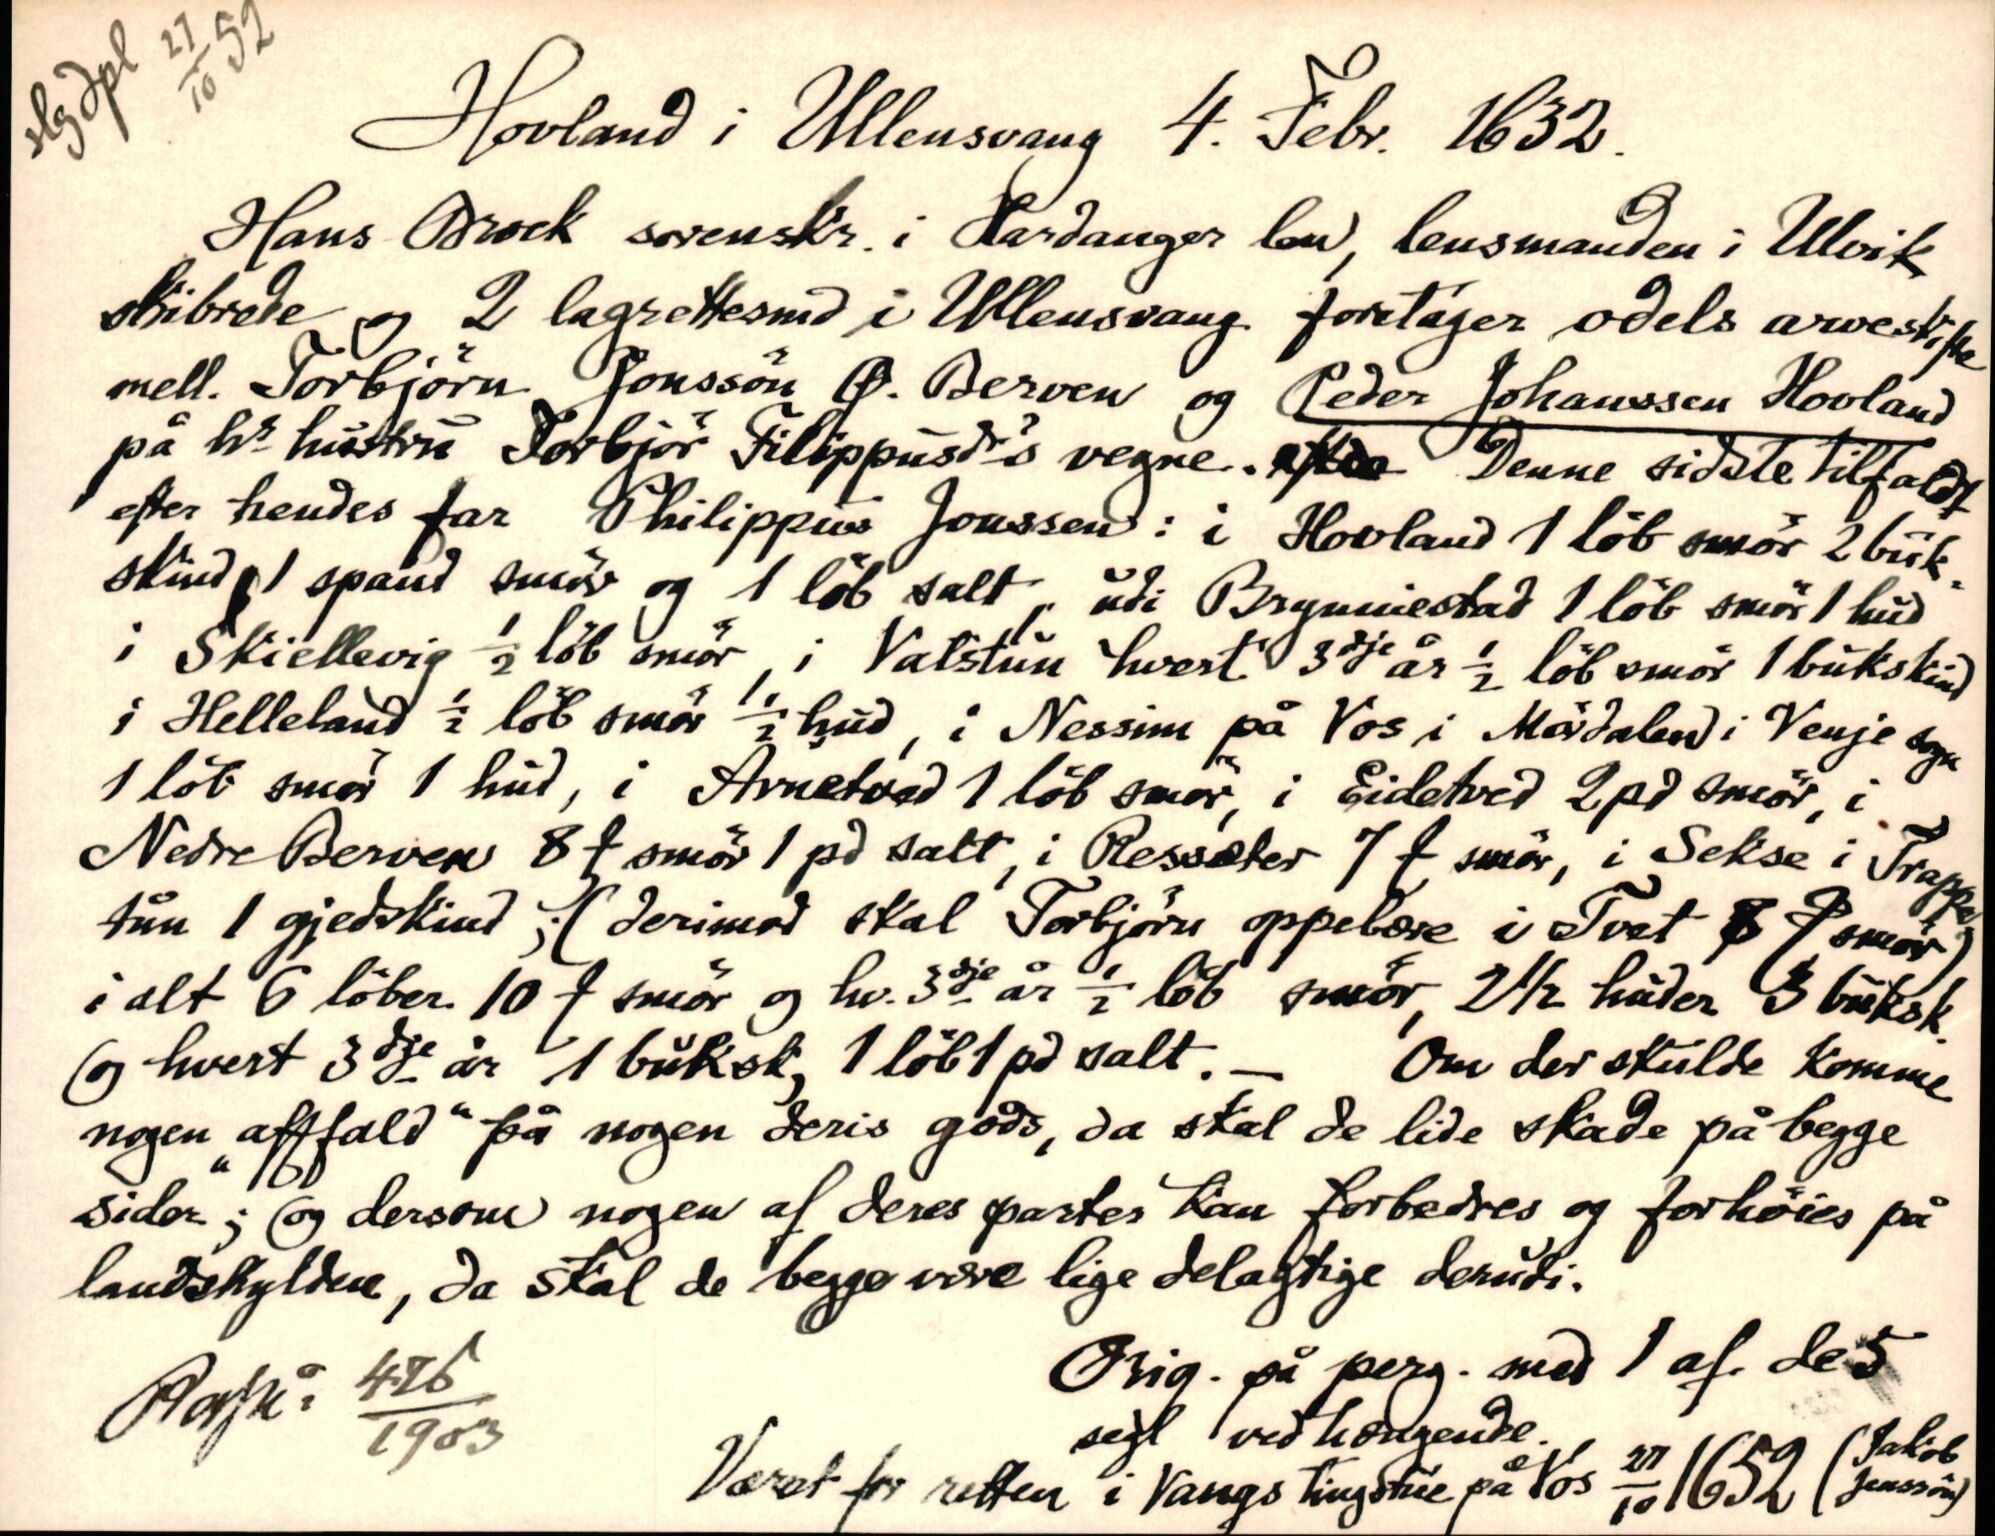 slg dpl 27/10 52
Hovland i Ullensvang 4. Febr. 1632.
Hans Brock sorenskr. i Hardanger len, lensmanden i Ulvik
skibrede og 2 lagrettesmd i Ullensvang foretager odels arveskifte
mell. Torbjörn Jonssön Ø. Berven og Peder Johanssen Hovland
på hs hustru Torbjör Filippusdr's vegne. Denne sidste tilfaldt
efter hendes far Philippus Jonssen: i Hovland 1 löb smör 2 buk-
skind, 1 spand smör og 1 löb salt, udi Brynniestad 1 löb smör 1 hud
i Skiellevig 1/2 löb smör, i Vatstun hvert 3dje år 1/2 löb smör 1 bukskind
i Helleland 1/2 löb smör 1/2 hud, i Nessim på Vos i Mördalen i Venje sogn
1 löb smör 1 hud, i Arnetved 1 löb smör, i Eidetved 2 pd smör, i
Nedre Berven 8 ℔ smör 1 pd salt, i Ressæter 7 ℔ smör, i Sekse i Trappe
tun 1 gjedskind; (derimod skal Torbjörn oppebære i Tvet ℔ smör)
i alt 6 löber 10 ℔ smör og hv. 3dje år 1/2 löb smör, 2 1/2 huder 3 buksk.
og hvert 3dje år 1 buksk, 1 löb 1 pd salt. — Om der skulde komme
nogen "affald" på nogen deris gods, da skal de lide skade på begge
sider"; og dersom nogen af deres parter kan forbedres og forhöies på
landskylden, da skal de begge være lige delagtige derudi.
Orig. på perg. med 1 af de 5
segl vedhængende.
426/1903
Været for retten i Vangs tingstue på Vos 27/10 1652 (Jakob
Jenssön)